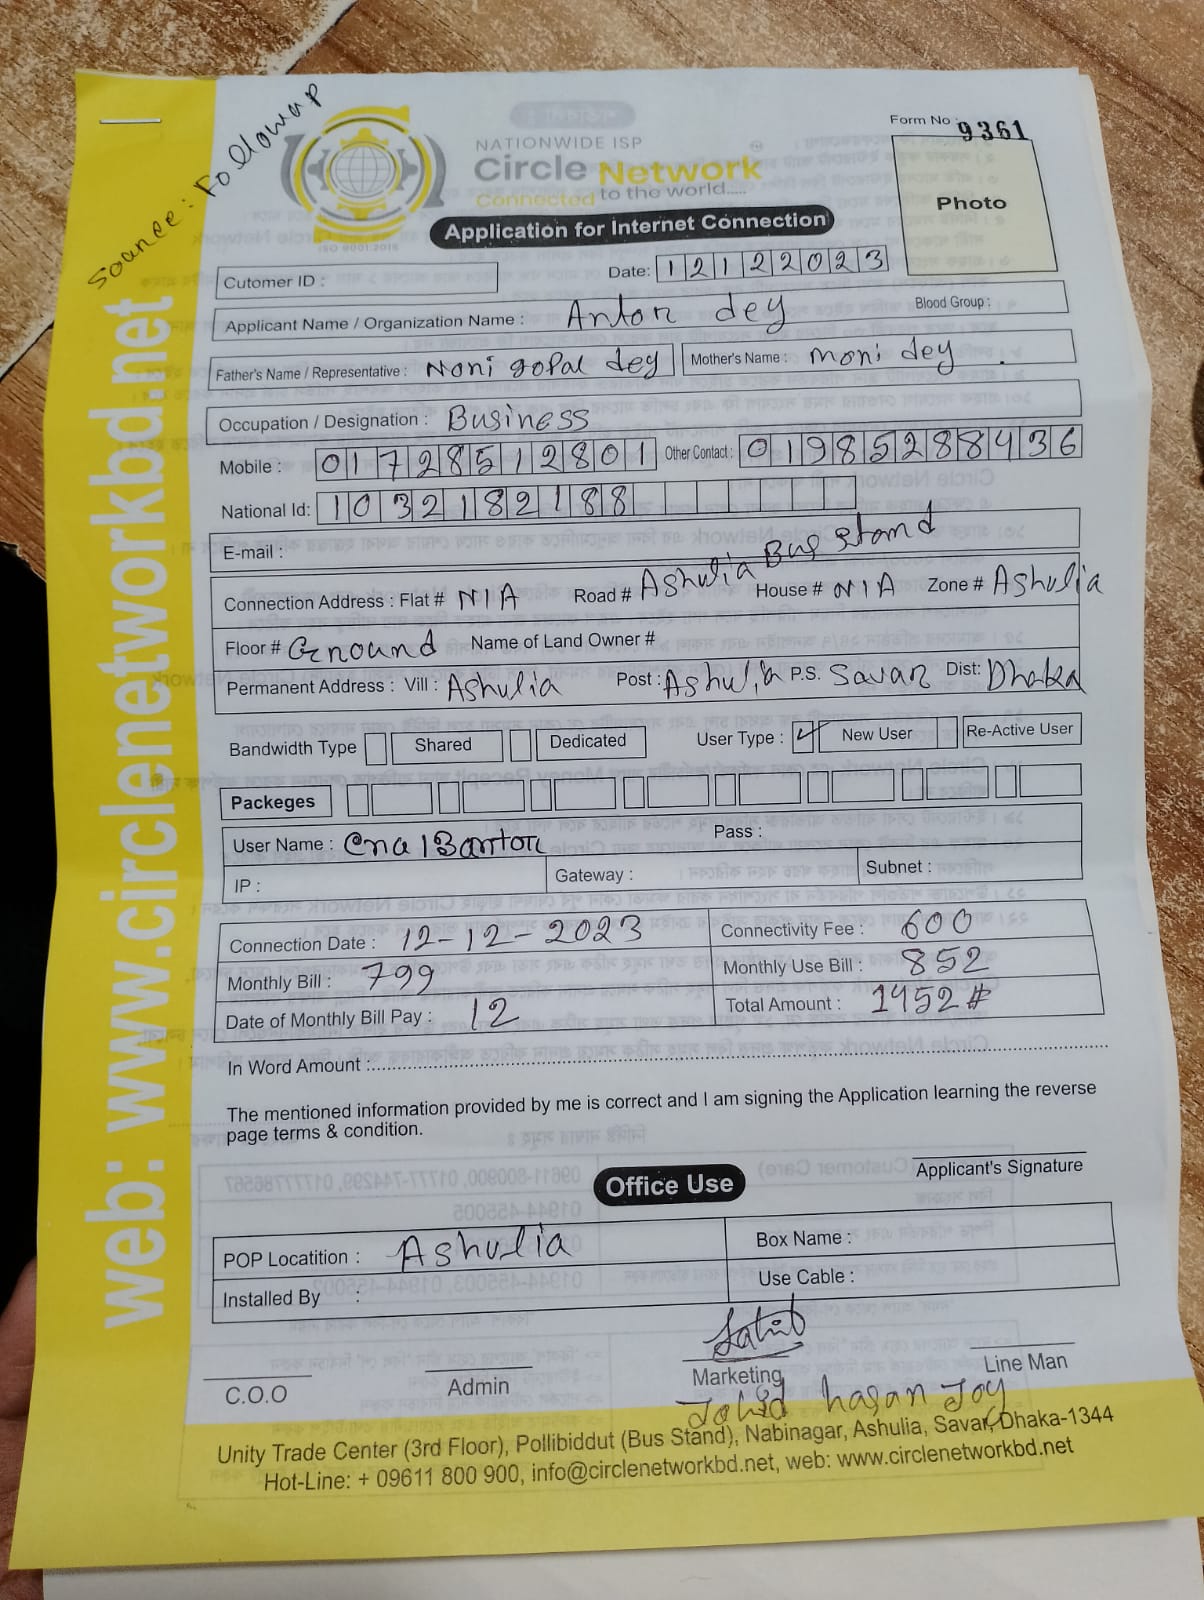 Soance: Followap
NATIONWIDE ISP
Circle Network
Connected to the world.....
ISO 9001:2015
Form No : 9361
Photo
Application for Internet Connection
Cutomer ID :
Date: 12122023
Applicant Name / Organization Name : Anton dey Blood Group :
Father's Name / Representative : Noni gopal dey Mother's Name : moni dey
Occupation / Designation : Business
Mobile : 01728512801 Other Contact : 01985288436
National Id: 1032182188
E-mail :
Connection Address : Flat # N/A Road # Ashulia Bus stand House # N/A Zone # Ashulia
Floor # Ground Name of Land Owner #
Permanent Address : Vill : Ashulia Post : Ashulia P.S. Savar Dist: Dhaka
Bandwidth Type Shared Dedicated User Type : New User Re-Active User
Packeges
User Name : Pass :
IP : Gateway : Subnet :
Connection Date : 12-12-2023 Connectivity Fee : 600
Monthly Bill : 799 Monthly Use Bill : 852
Date of Monthly Bill Pay : 12 Total Amount : 1452#
In Word Amount :
The mentioned information provided by me is correct and I am signing the Application learning the reverse
page terms & condition.
Applicant's Signature
Office Use
POP Locatition : Ashulia Box Name :
Installed By : Use Cable :
C.O.O Admin Marketing Line Man
Jahid hasan Joy
Unity Trade Center (3rd Floor), Pollibiddut (Bus Stand), Nabinagar, Ashulia, Savar, Dhaka-1344
Hot-Line: + 09611 800 900, info@circlenetworkbd.net, web: www.circlenetworkbd.net
web: www.circlenetworkbd.net